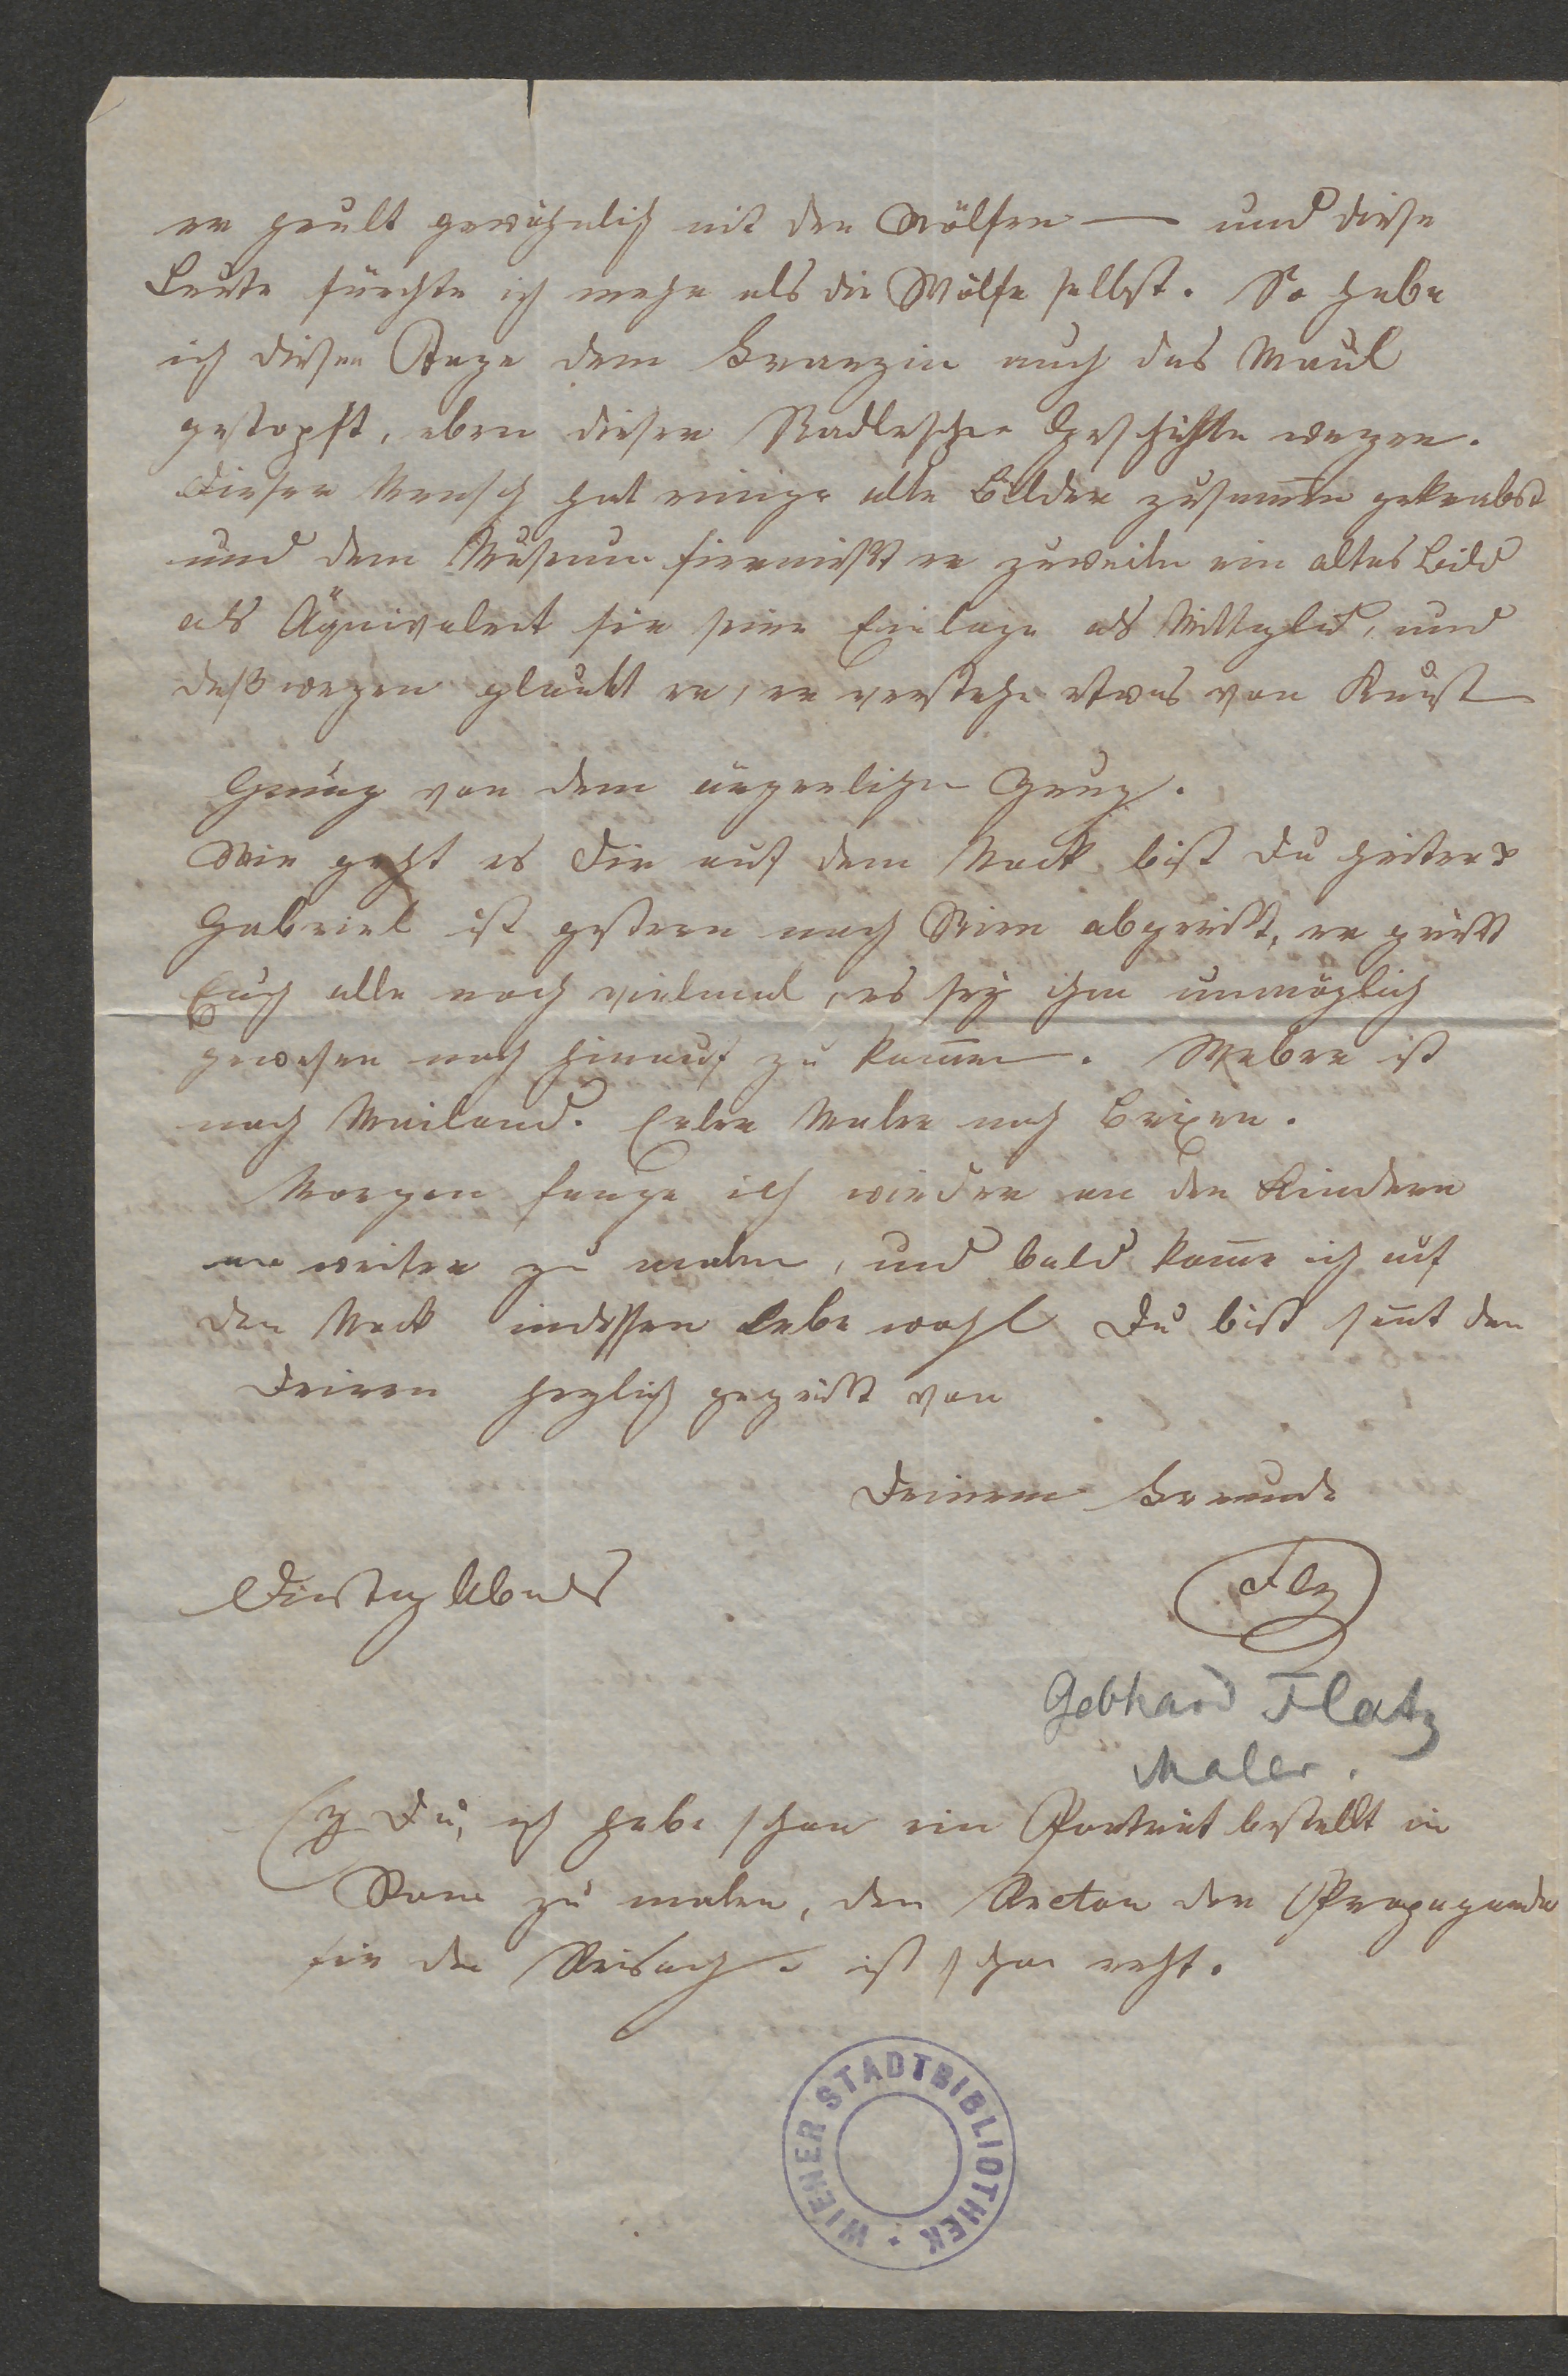 er heult gewöhnlich mit den Wölfen — und diese
Leute fürchte ich mehr als die Wölfe selbst. So habe
ich dieser Tage dem auch das Maul
gestopft, eben dieser Geschichte wegen.
Dieser Mensch hat einige alte Bilder zusam̅en
und dem Museum firnißt er zuweilen ein altes Bild
als Äquivalent für seine Einlage als Mittglid, und
deßwegen glaubt er, er verstehe etwas von Kunst
Genug von dem ärgerlichen Zeug.
Wie geht es Dir auf dem bist Du heiter?
Gabriel ist gestern nach Wien abgereißt, er grüßt
Euch alle noch vielmal, es sey ihm unmöglich
gewesen noch hinauf zu kom̅en. Weber ist
nach Mailand. Maler nach Brixen.
Morgen fange ich wieder an den Kindern
an weiter zu malen, und bald kom̅e ich auf
den indessen Lebe wohl Du bist sam̅t den
Deinen herzlich gegrüßt von
Deinem Freunde
Dienstag Abends
Flz
Gebhard Flatz
Maler.
Du, ich habe schon ein Porträt bestellt in
Rom zu malen, den Rector der Propaganda
für den ist schon recht.
WIENER STADTBIBLIOTHEK